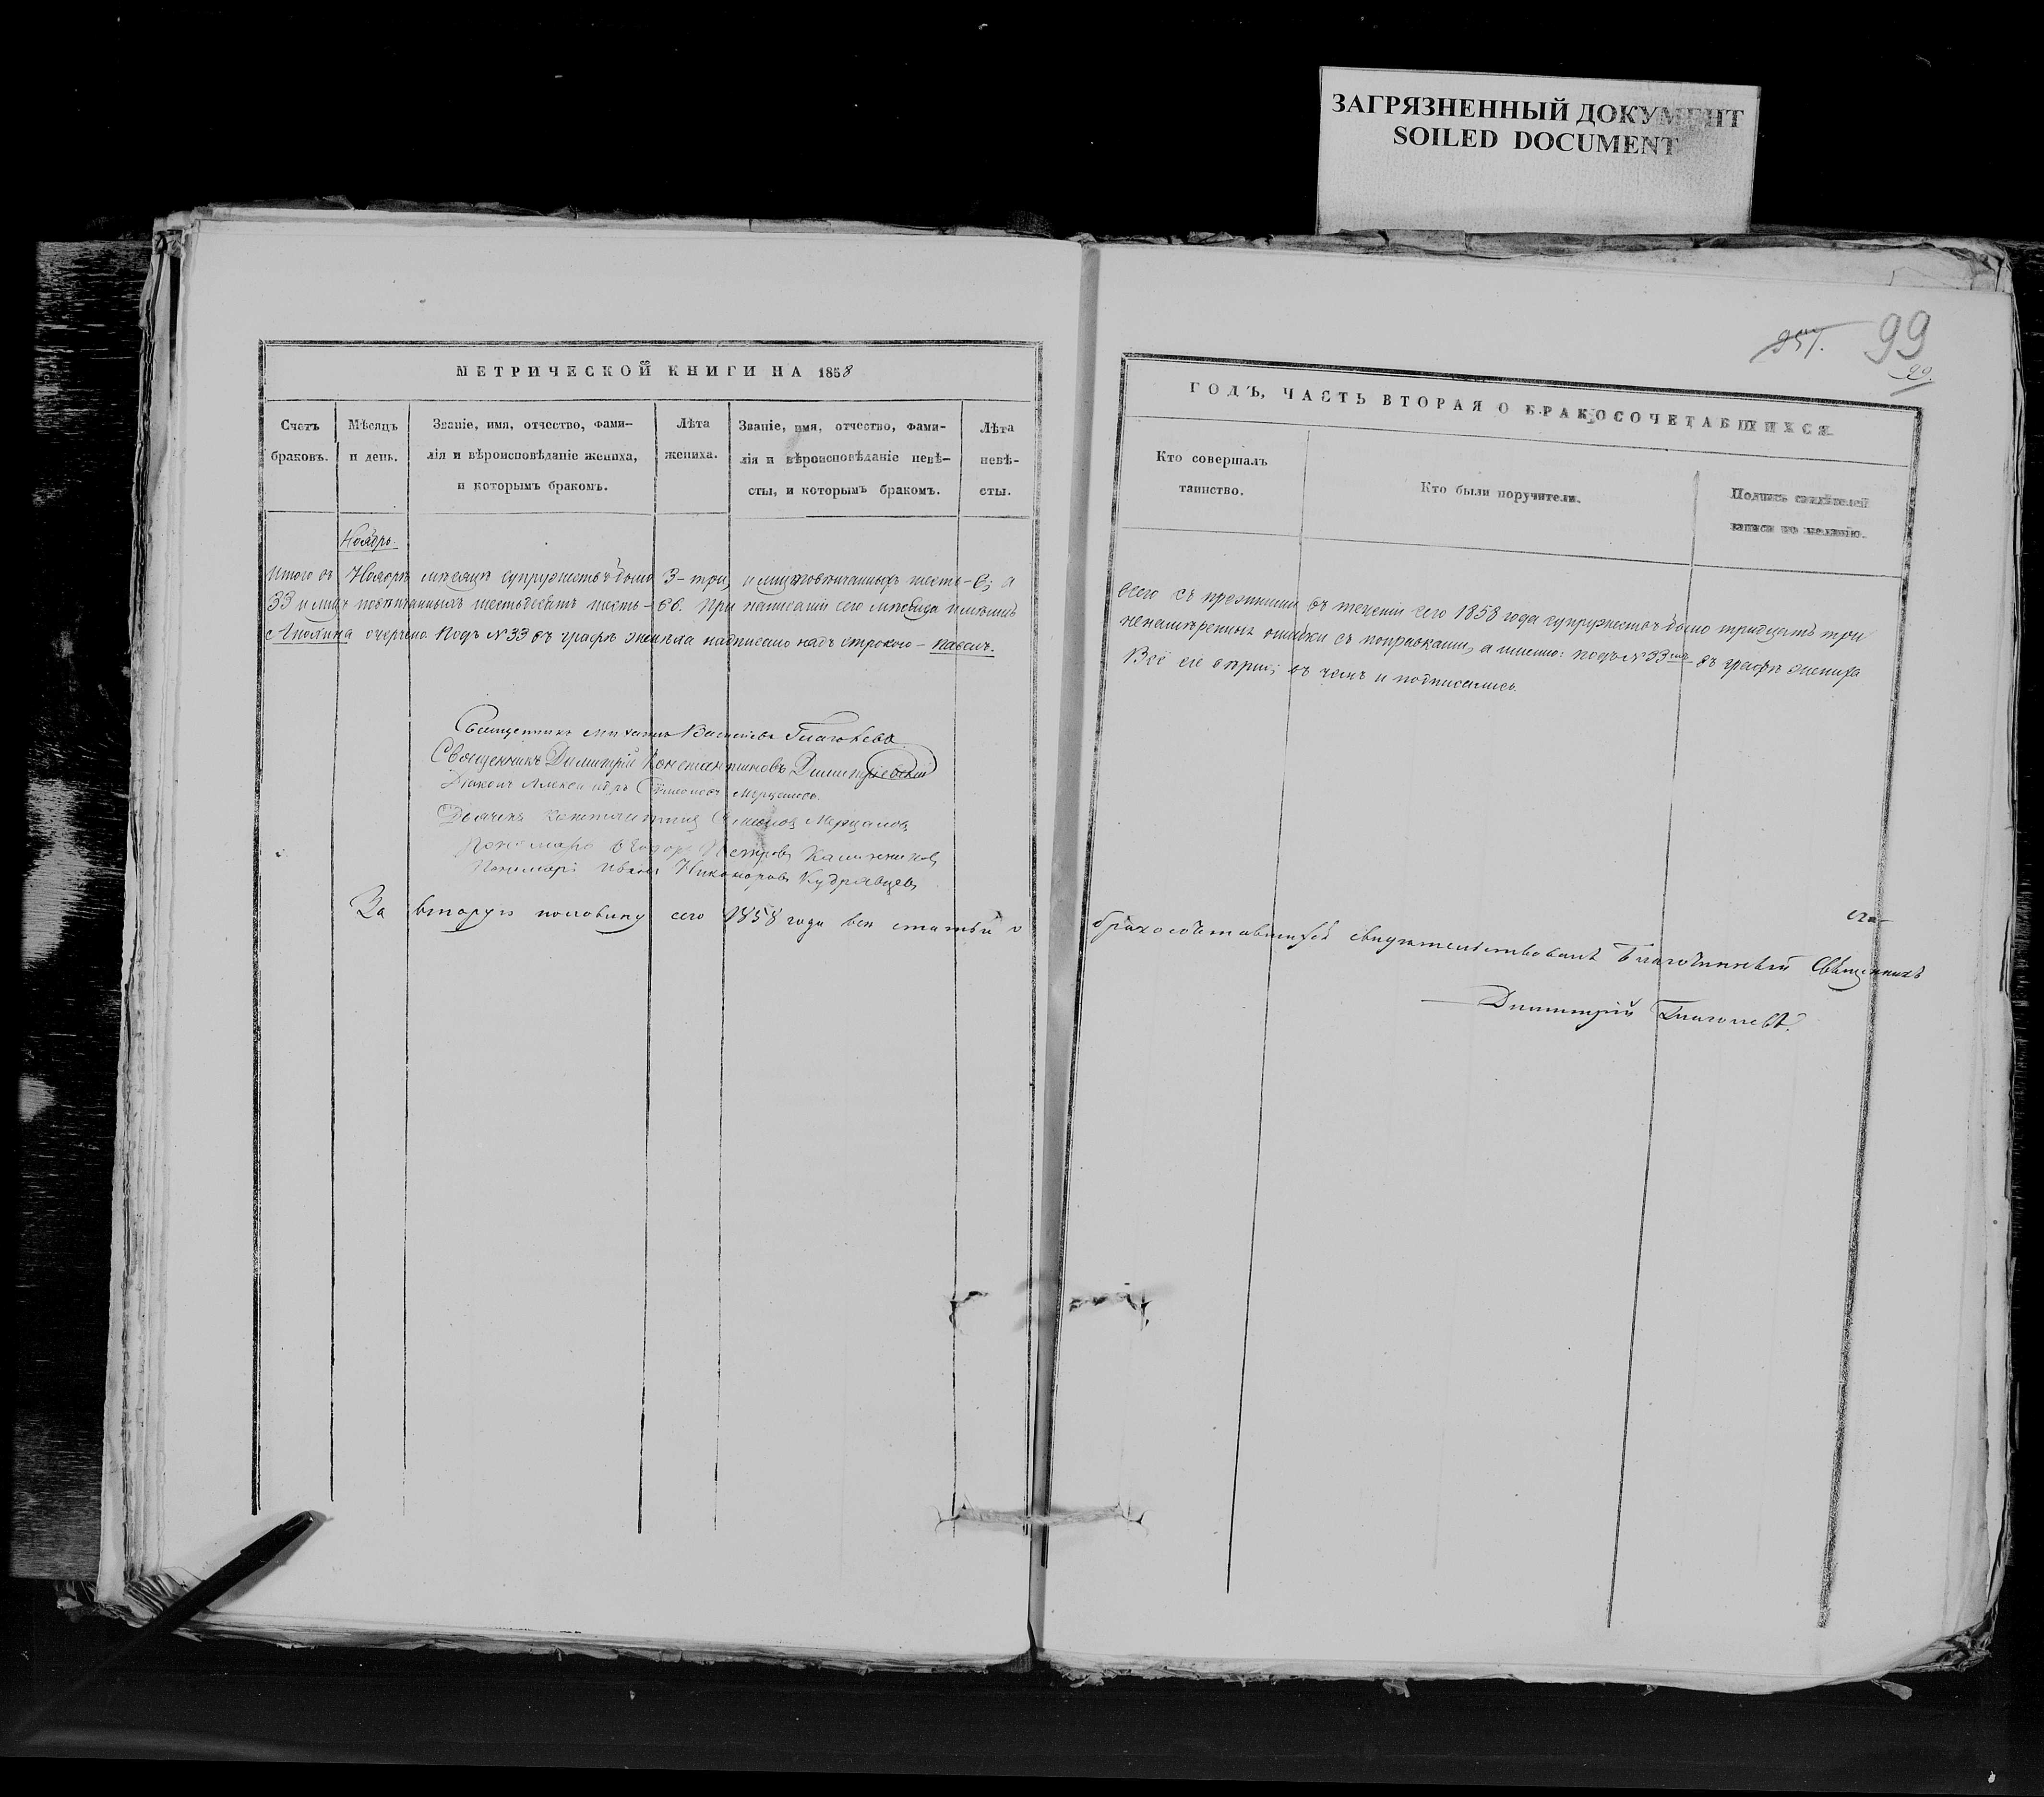 ЗАГРЯЗНЕННЫЙ ДОКУМЕНТ
SOILED DOCUMENT
МЕТРИЧЕСКОЙ КНИГИ НА 1858
Счетъ браковъ.
Мѣсяцъ и день.
Званіе, имя, отчество, фами-
лія и вѣроисповѣданіе жениха,
и которымъ бракомъ.
Лѣта
жениха.
Званіе, имя, отчество, фами-
лія и вѣроисповѣданіе невѣ-
сты, и которымъ бракомъ.
Лѣта
невѣ-
сты.
Ноябрь.
Итого въ Ноябрѣ мѣсяцѣ супружествъ было 3-три, и лицъ повѣнчанныхъ шесть-6; а
33 и лицъ повѣнчанныхъ шестьдесятъ шесть-66. При написаніи сего
очерчено. Подъ N 33 въ графѣ жениха надписано надъ строкою - Павелъ.
Священникъ Михаилъ Васильевъ Глаголевъ
Священникъ Димитрій Константиновъ Димитріевскій
Діаконъ Александръ Симеоновъ Мерцаловъ
Дьячекъ Константинъ Семеновъ Мерцаловъ
Пономарь Петровъ
Пономарь Иванъ Никаноровъ Кудрявцевъ
За вторую половину сего 1858 года всѣ статьи о
257.
99
29
ГОДЪ, ЧАСТЬ ВТОРАЯ О БРАКОСОЧЕТАВШИХСЯ
Кто совершалъ
таинство.
Кто были поручители.
Подпись свидѣтелей
записи по желанію.
всего съ прежними въ теченіи сего 1858 года супружествъ было тридцать три
ненамѣренныя ошибки съ поправками, а именно: подъ N 33мъ въ графѣ жениха
Всё сіе вѣрно; въ чемъ и подписались.
бракосочетавшихся свидѣтельствовалъ Благочинный Священникъ
Димитрій Глаголевъ.